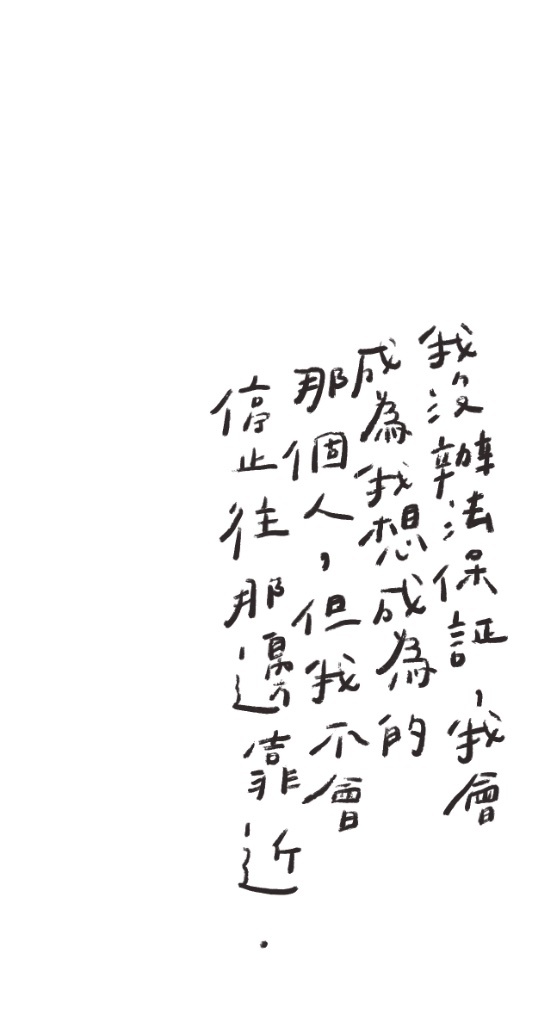 我沒辦法保証，我會
成為我想成為的
那個人，但我不會
停止往那邊靠近.